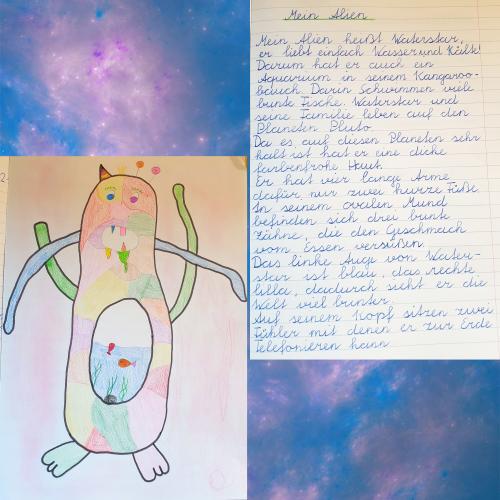 Mein Alien
Mein Alien heißt Waterstar,
er liebt einfach Wasser und Kälte!
Darum hat er auch ein
Aquarium in seinem Kangaroo-
bauch. Darin Schwimmen viele
bunte Fische. Waterstar und
seine Familie leben auf den
Planeten Pluto.
Da es auf diesen Planeten sehr
kalt ist hat er eine dicke
farbenfrohe Haut.
Er hat vier lange Arme
dafür nur zwei kurze Füße.
In seinem ovalen Mund
befinden sich drei bunte
Zähne, die den Geschmack
vom Essen versüßen.
Das linke Auge von Water-
star ist blau, das rechte
lilla, dadurch sieht er die
Welt viel bunter.
Auf seinem Kopf sitzen zwei
Fühler mit denen er zur Erde
Telefonieren kann